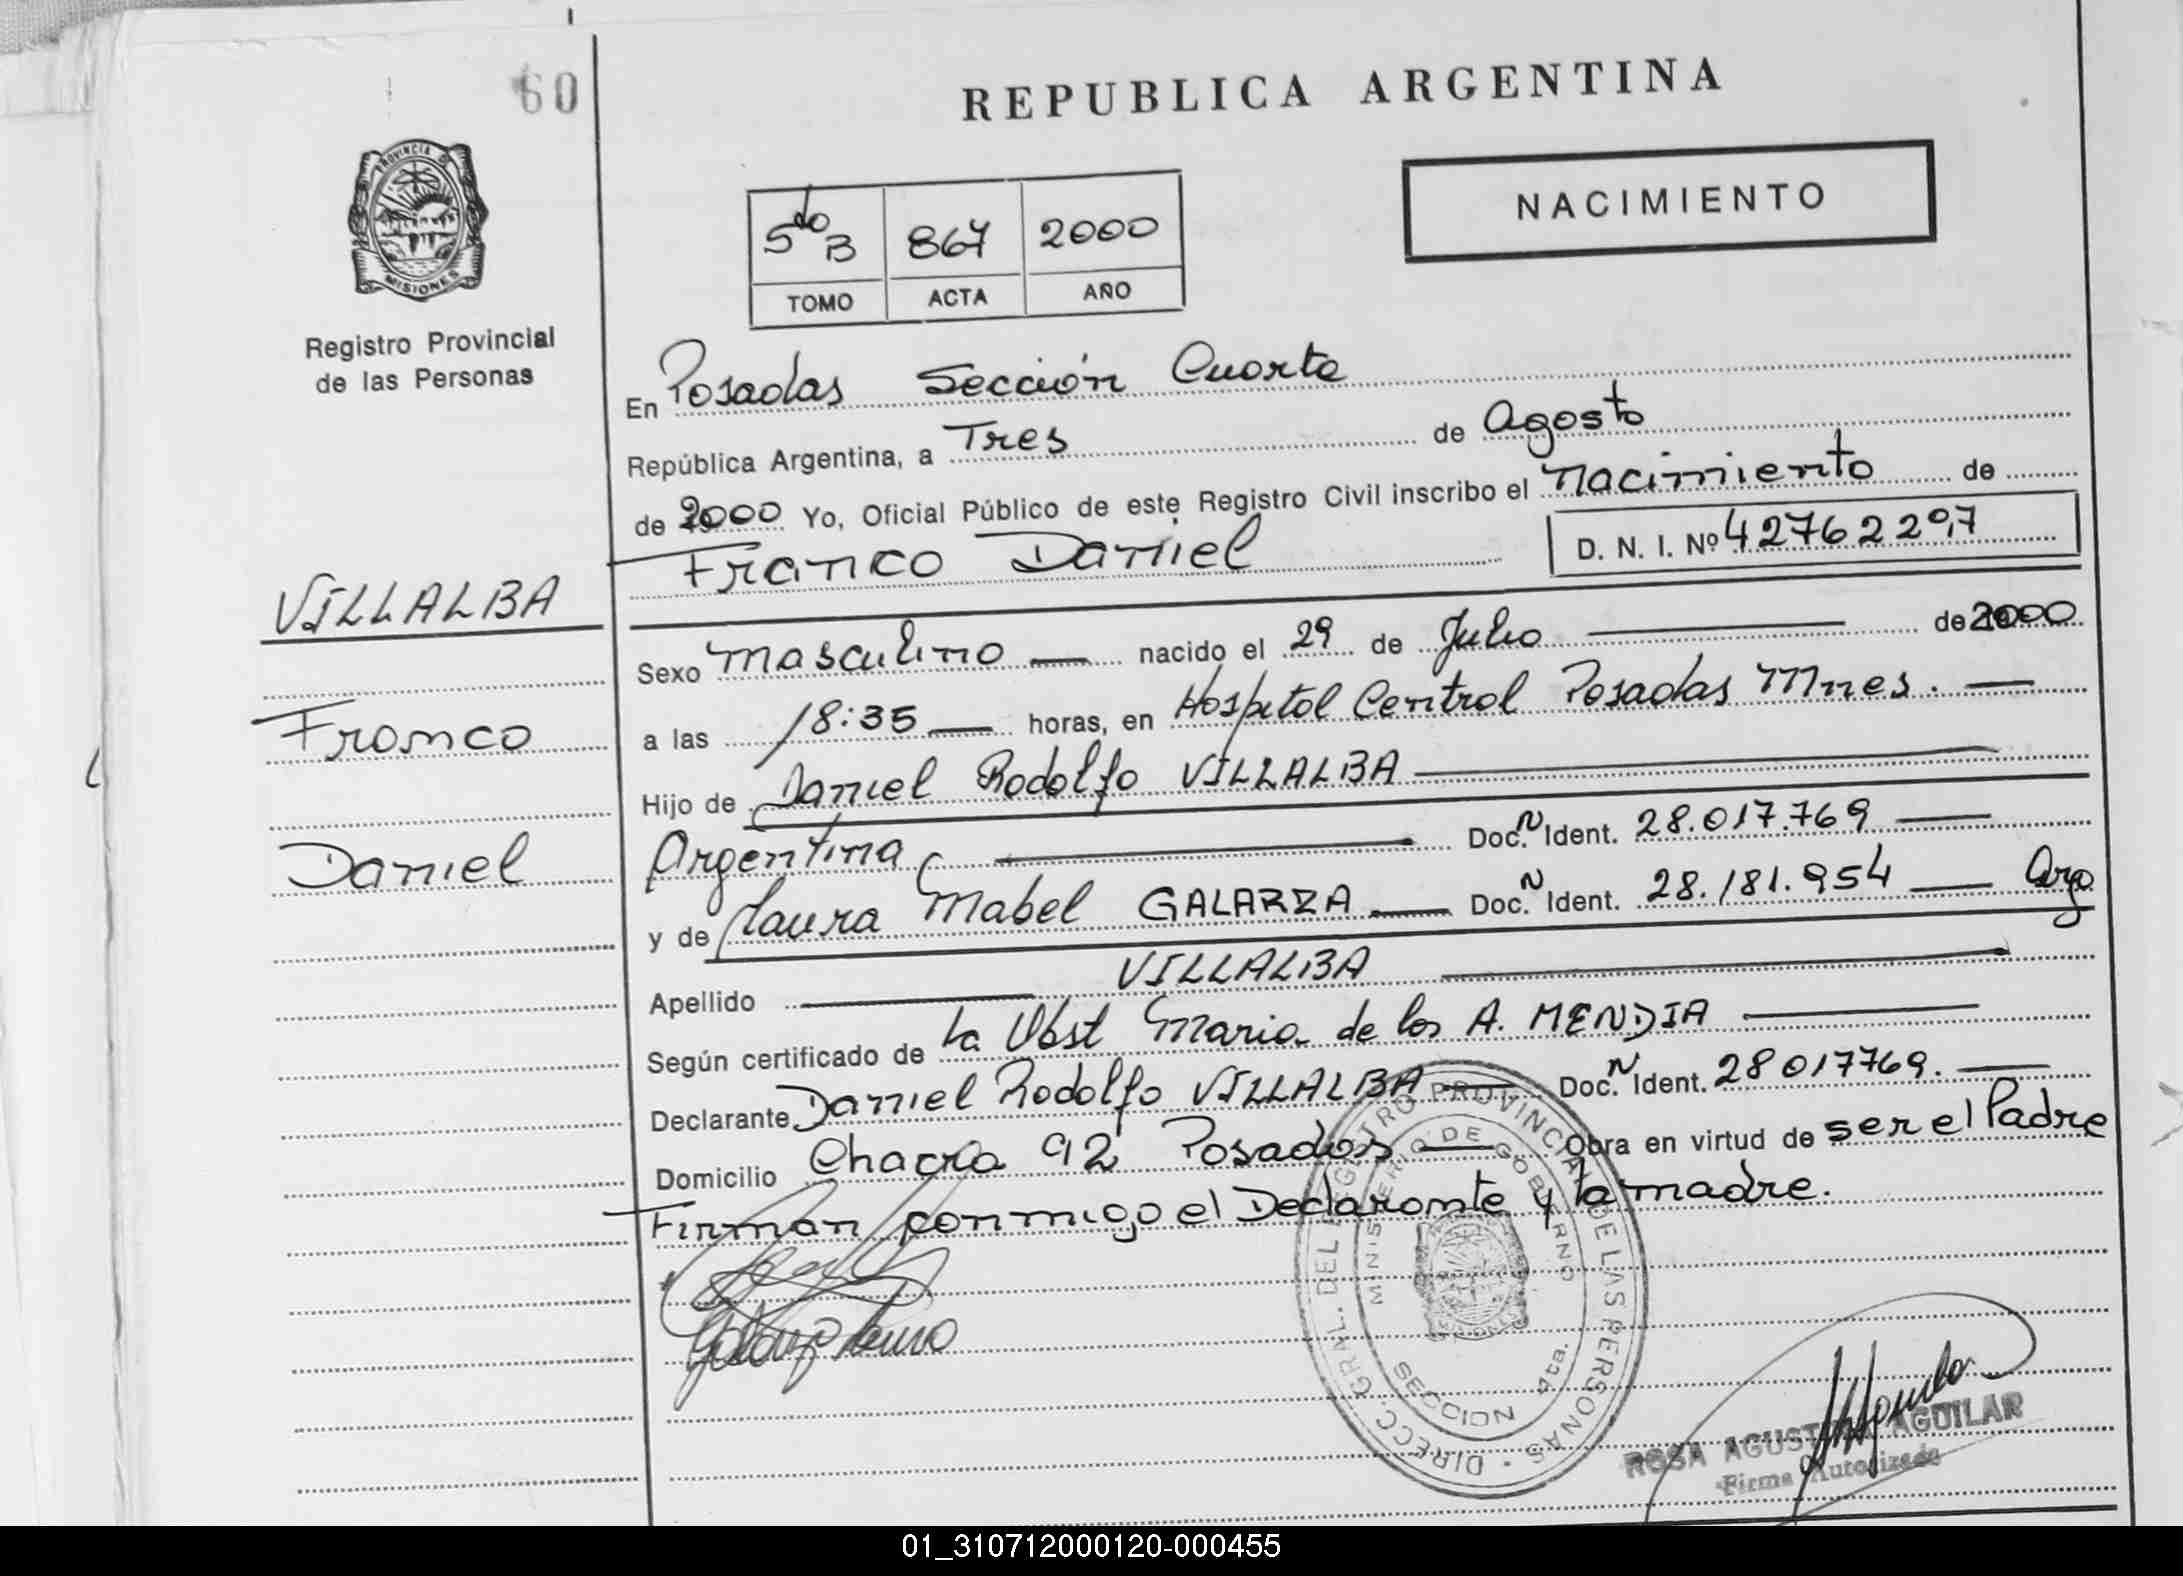 60
REPUBLICA ARGENTINA
NACIMIENTO
PROVINCIA DE
MISIONES
5do B 867 2000
TOMO ACTA AÑO
Registro Provincial
de las Personas
En Posadas Sección Cuarta
República Argentina, a Tres de Agosto
de 2000 Yo, Oficial Público de este Registro Civil inscribo el Nacimiento de
Franco Daniel D. N. I. Nº 42762297
VILLALBA
Sexo Masculino nacido el 29 de Julio de 2000
Franco
a las 18:35 horas, en Hospital Central Posadas Mnes.
Hijo de Daniel Rodolfo VILLALBA
Daniel
Argentina Doc. N Ident. 28.017.769
y de Laura Mabel GALARZA Doc. N Ident. 28.181.954 Arg
Apellido VILLALBA
Según certificado de la Obst Maria de los A. MENDIA
Declarante Daniel Rodolfo VILLALBA Doc. N Ident. 28017769.
Domicilio Chacra 92 Posadas Obra en virtud de ser el Padre
Firman conmigo el Declarante y la madre.
Galarza Laura
DIRECC. GRAL. DEL REGISTRO PROVINCIAL DE LAS PERSONAS
MINISTERIO DE GOBIERNO
SECCION 4ta.
ROSA AGUSTINA AGUILAR
Firma Autorizada
01_310712000120-000455